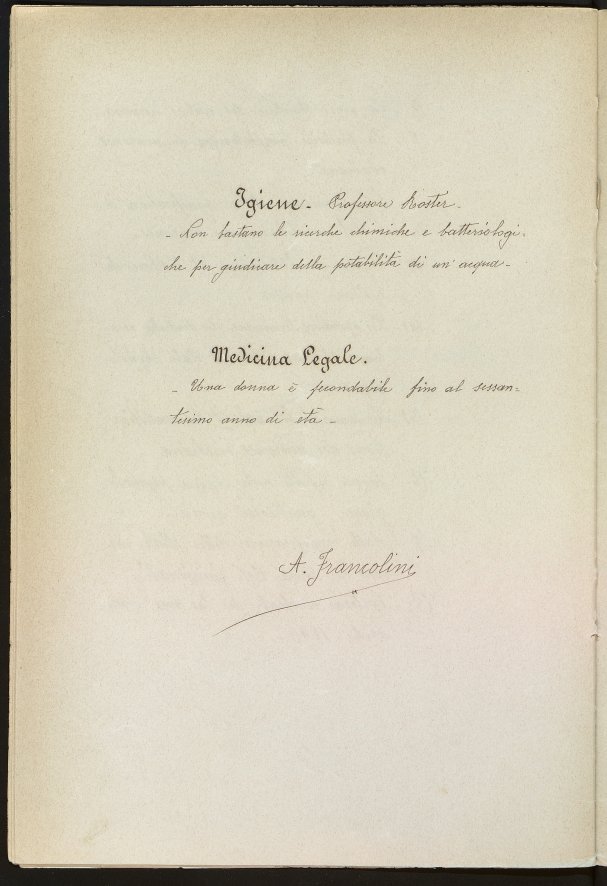 Igiene - Professore Roster.
- Non bastano le ricerche chimiche e batteriologi-
che per giudicare della potabilità di un' acqua -
Medicina Legale.
- Una donna è fecondabile fino al sessan-
tesimo anno di età -
A. Francolini